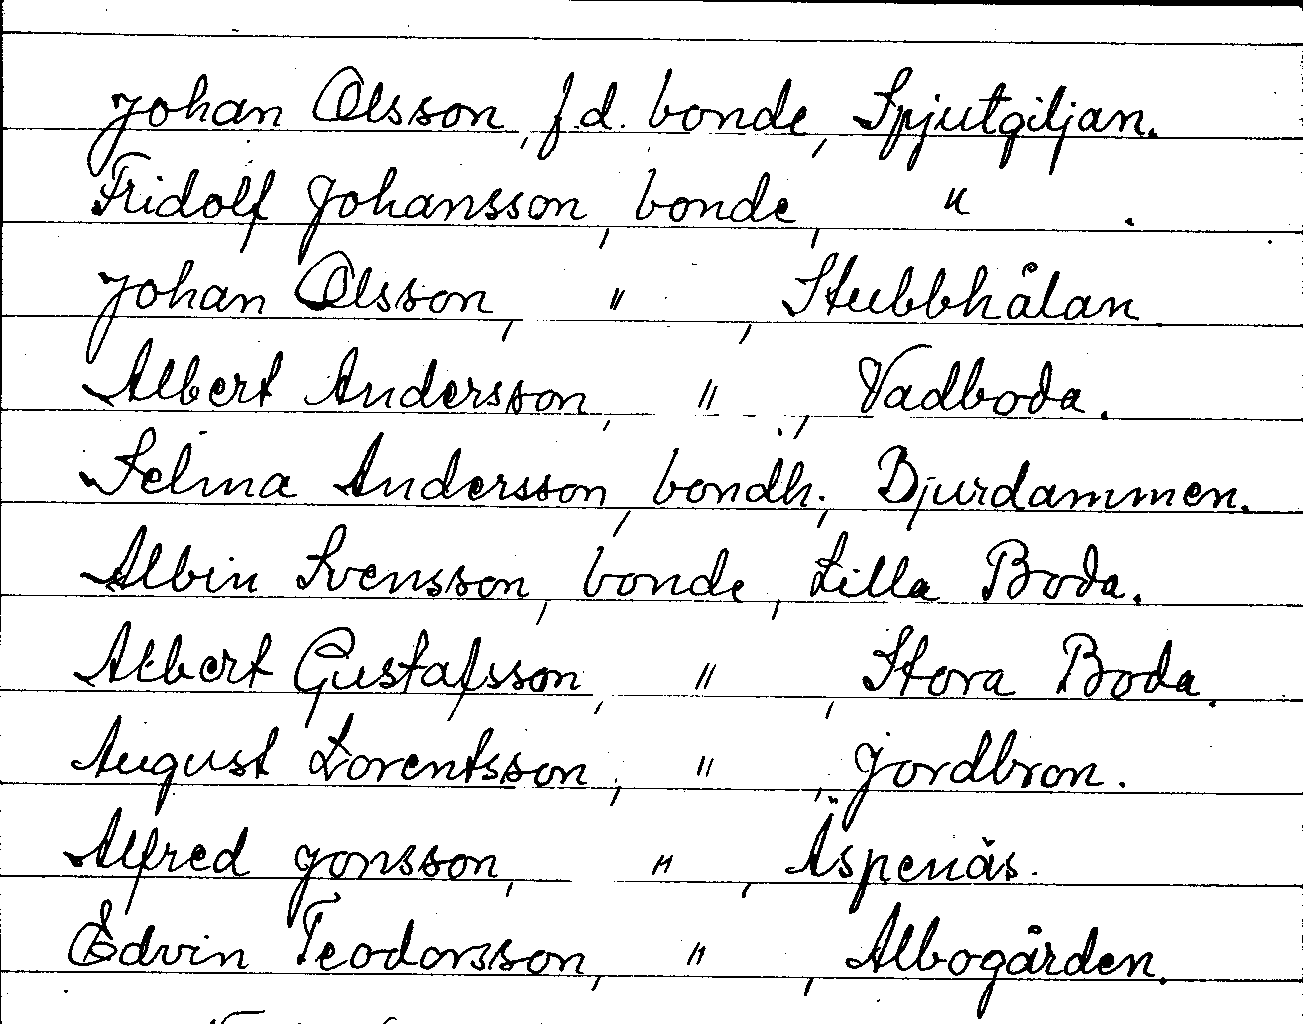 Johan Olsson, f.d. bonde, Spjutgiljan.
Fridolf Johansson, bonde, " .
Johan Olsson, " , Stubbhålan
Albert Andersson, " , Vadboda.
Selma Andersson, bondh., Djurdammen.
Albin Svensson, bonde, Lilla Boda.
Albert Gustafsson, " , Stora Boda.
August Lorentsson, " , Jordbron.
Alfred Jonsson, " , Äspenäs.
Edvin Teodorsson, " , Albogården.